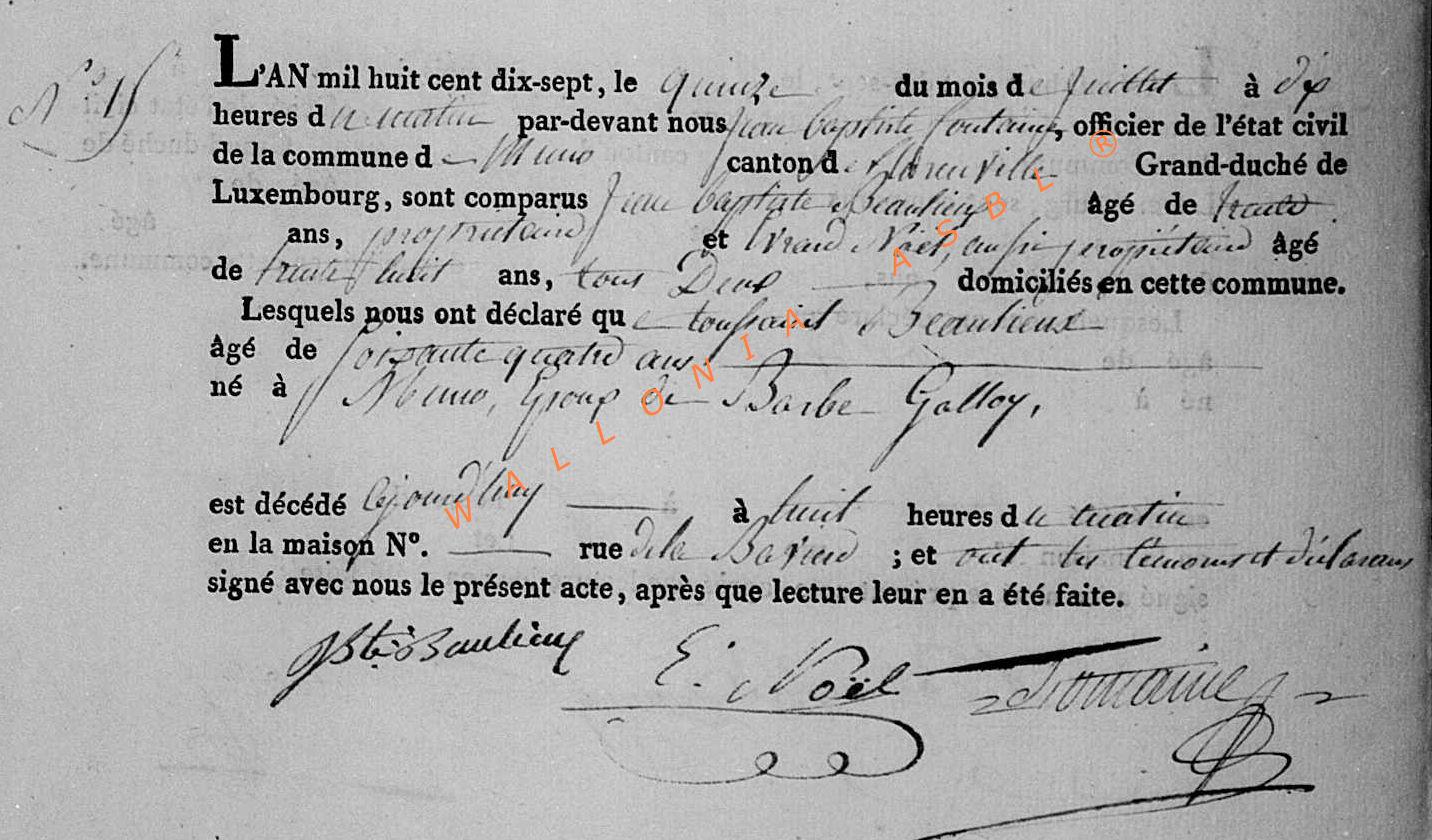 N° 15
L'AN mil huit cent dix-sept, le quinze du mois de juillet à dix
heures du matin par-devant nous jean baptiste fontaine, officier de l'état civil
de la commune de Muno canton de florenville Grand-duché de
Luxembourg, sont comparus Jean baptiste Beaulieux âgé de trente
ans, propriétaire et Evrard Noël, aussi propriétaire âgé
de trente huit ans, tous Deux domiciliés en cette commune.
Lesquels nous ont déclaré que toussaint Beaulieux
âgé de soisante quatre ans
né à Muno, Epoux de Barbe Galloy,
est décédé cejourd'huy à huit heures du matin
en la maison N°. rue de la ; et ont les témoins et déclarans
signé avec nous le présent acte, après que lecture leur en a été faite.
JBte Baulieux E. Noël Fontaine
WALLONIA ASBL ®